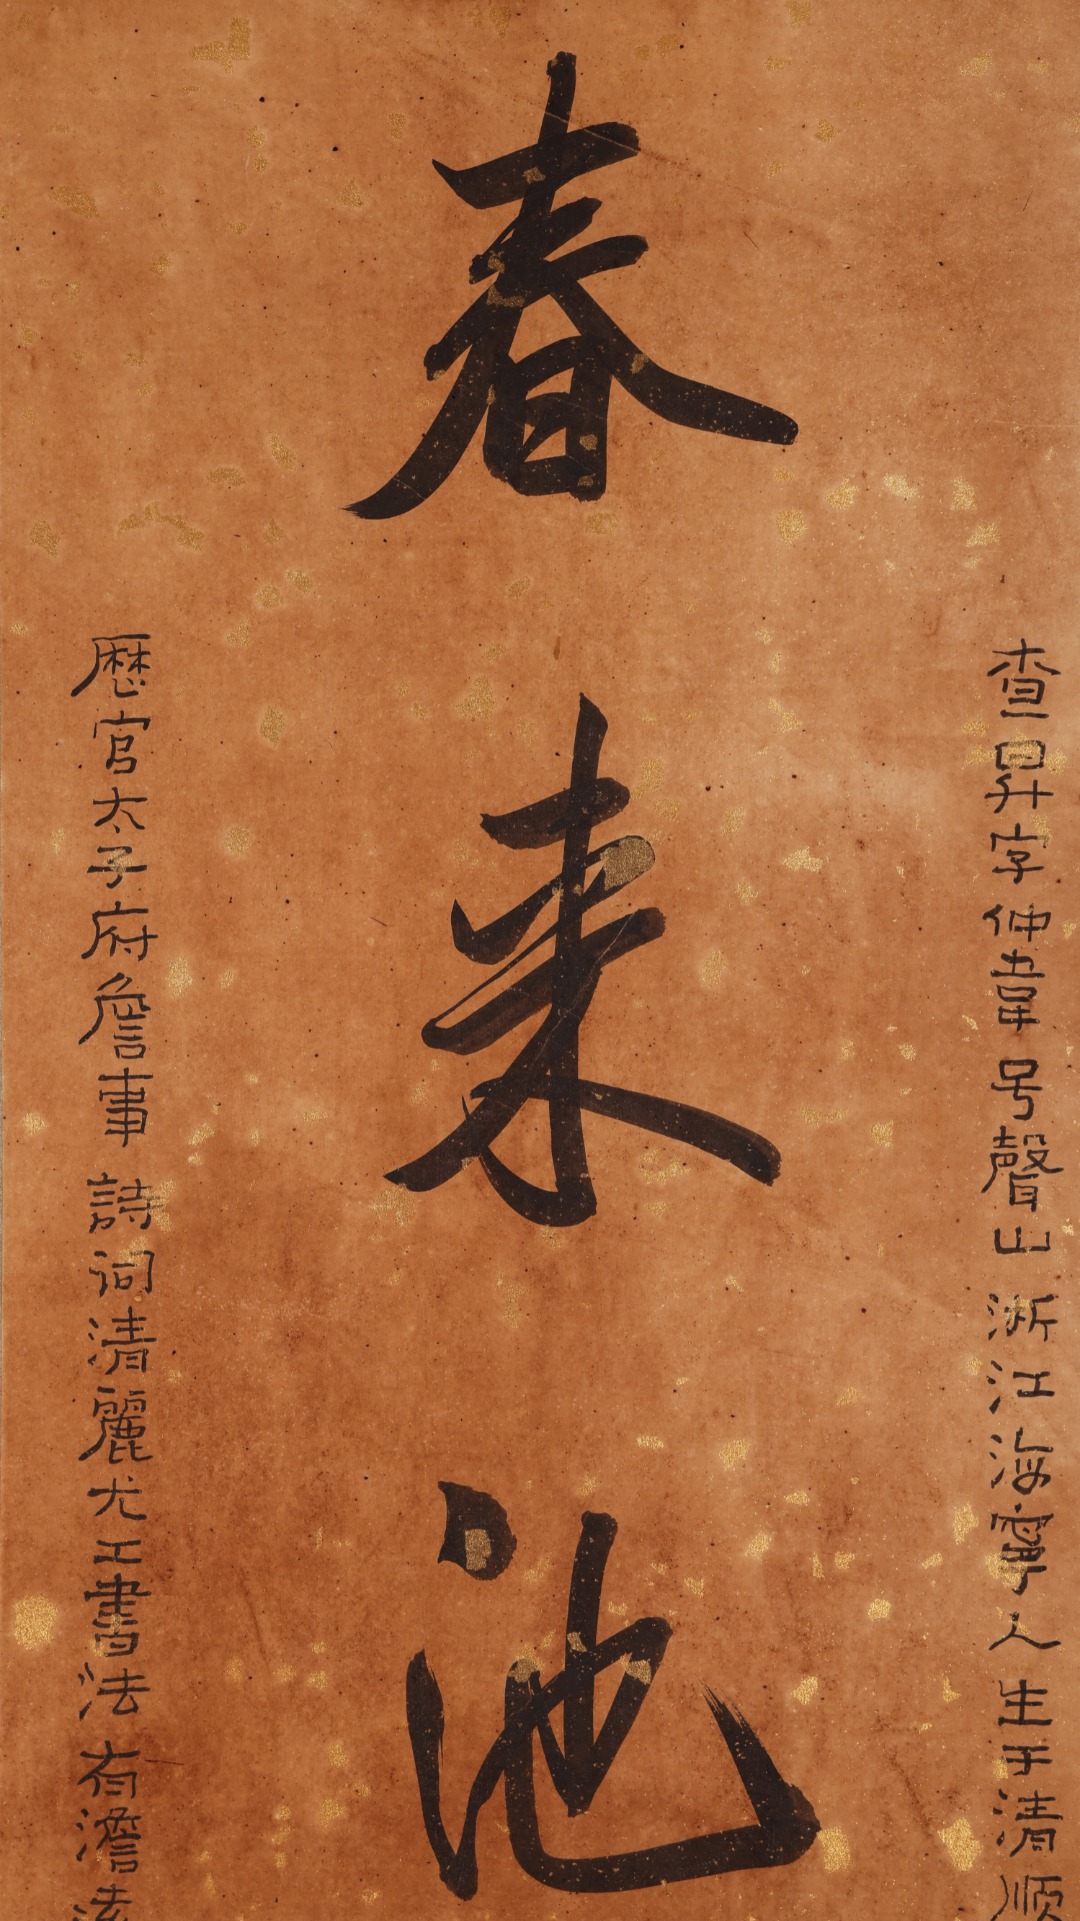 查昇字仲韋号聲山 浙江海寧人 生于清順
春来池
歷官太子府詹事 詩词清麗尤工書法 有澹